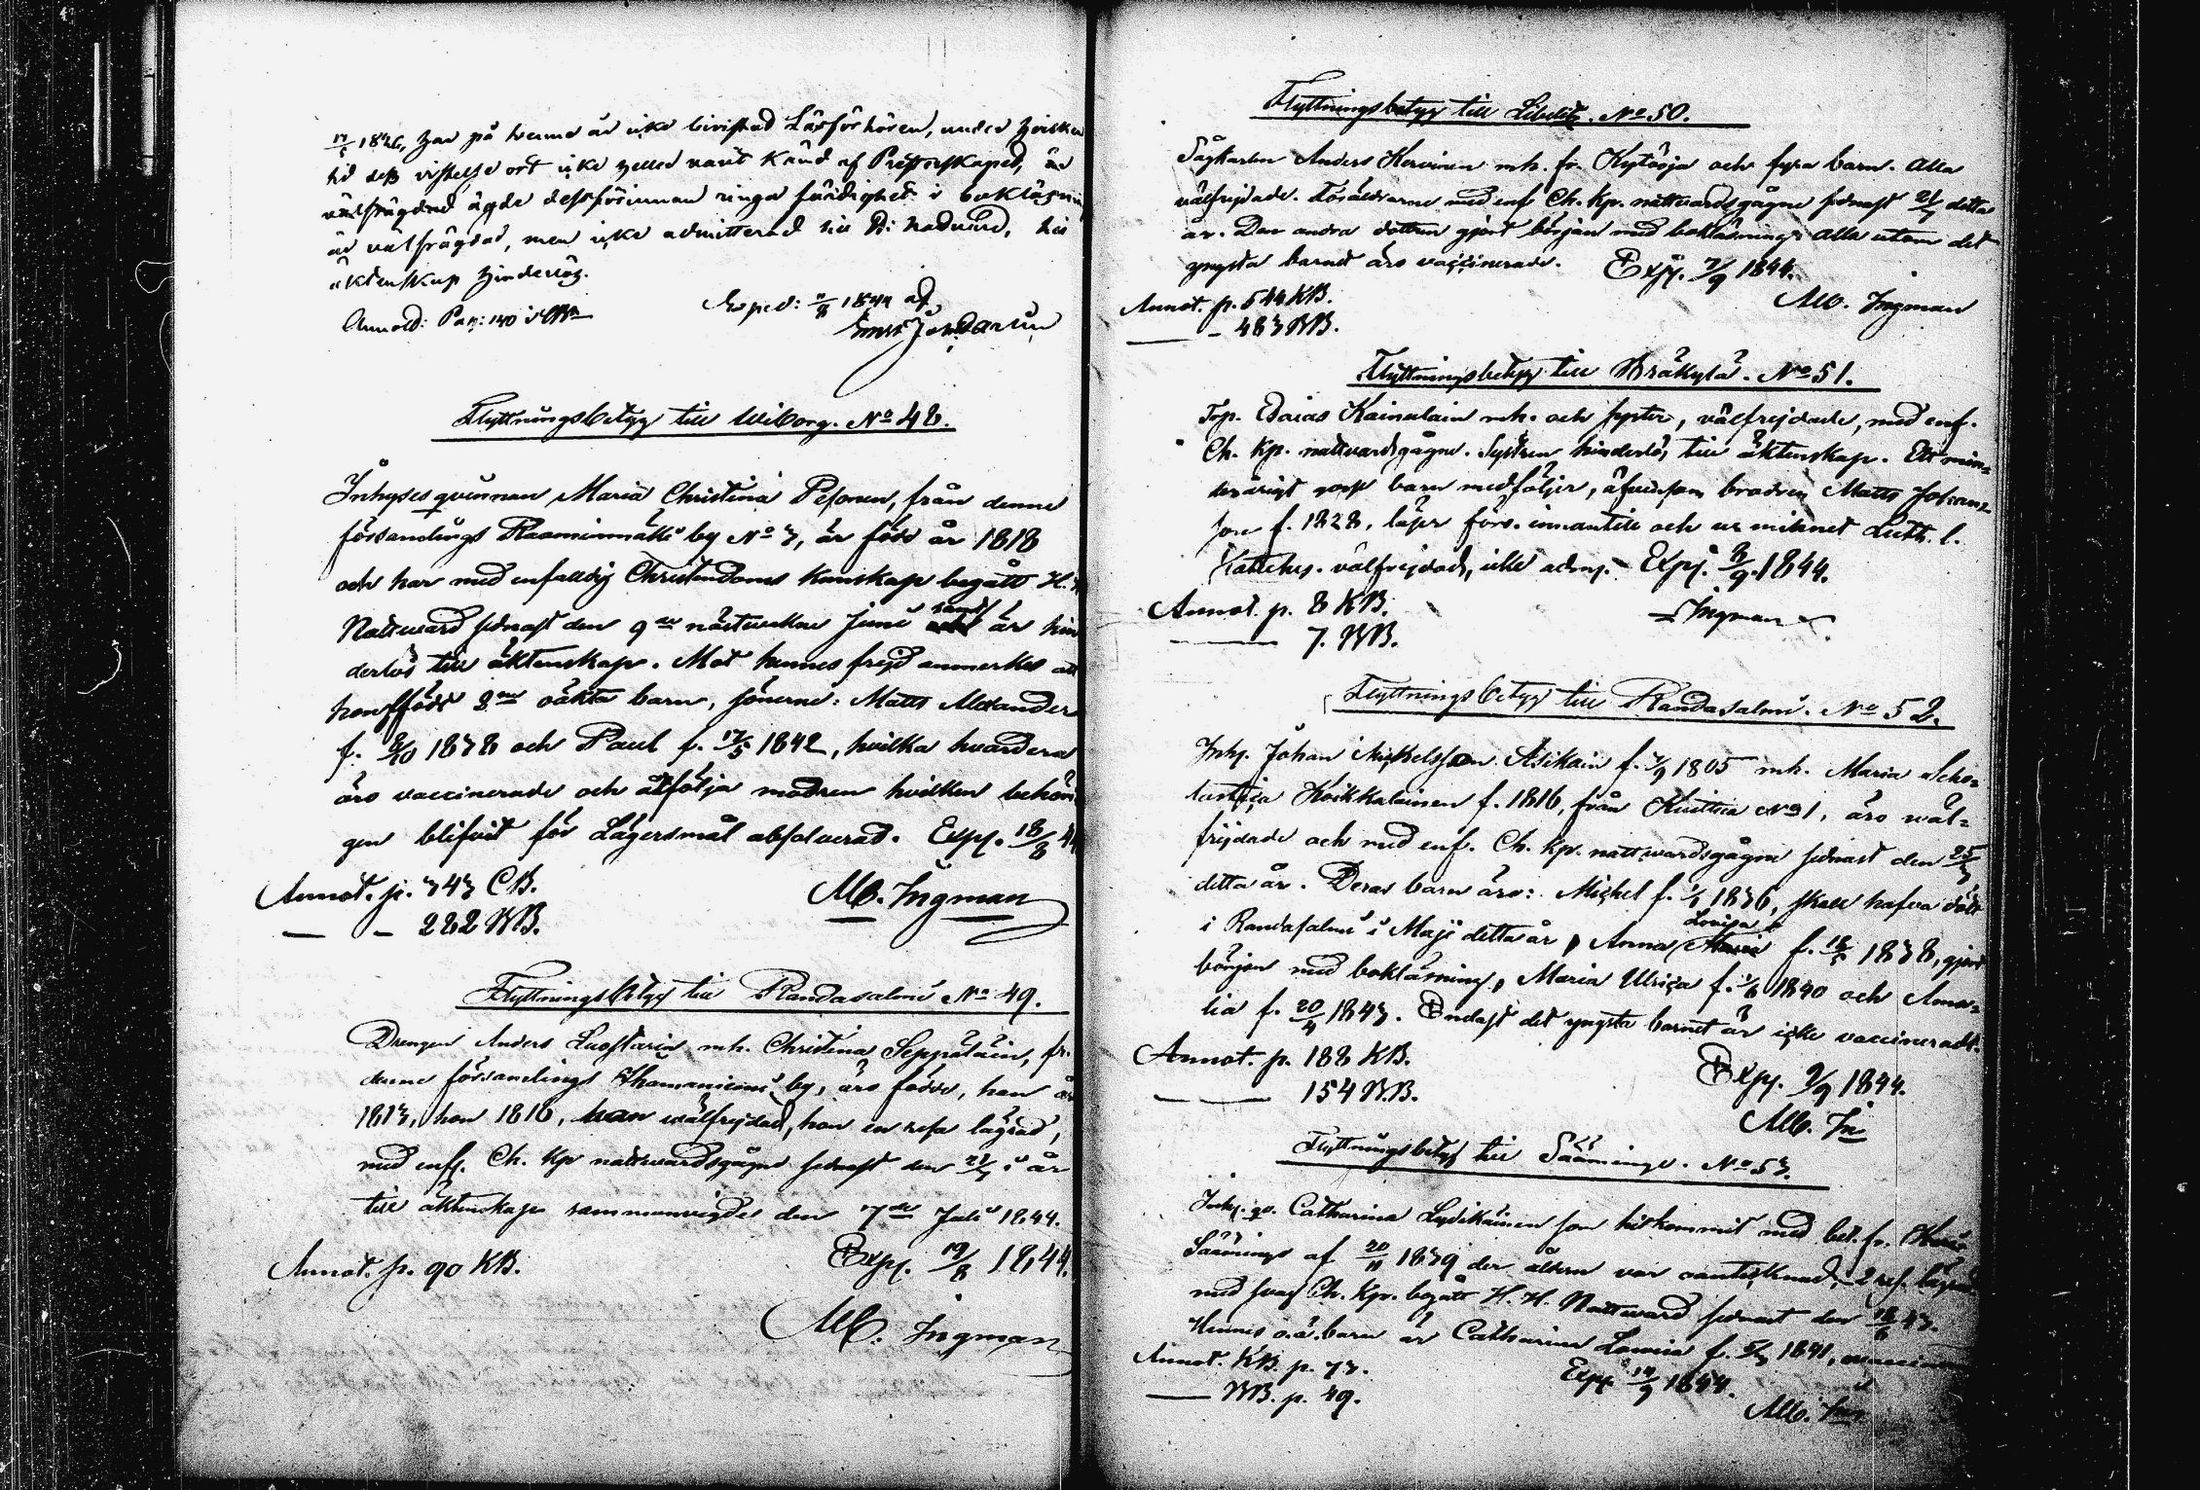 17/5 1826, har på denne år icke bivistad Läsförhören, under hvilken
tid dess vistelse ort icke heller varit känd af Presterskapet, är
välfrägdad ägde dessförinnan ringa färdighet i bokläsning
är välfrägdad, men icke admitterad till H: Nadvard, till
äktenskap hinderlös.
Annoterd: Pag: 140 i
Exped: 11/8 1844 af
Flyttningsbetyg till Wiborg. No 48.
Inhyses qvinnan Maria Christina Pesonen, från denne
församlings Raaminmäki by No 3, är född år 1818
och har med enfaldig Christendoms kunskap begått H. H.
Nattvard sednast den 9de nästvekne Junii samt är hin
derlös till äktenskap. Mot hennes frejd anmerkes att
hon födt 2ne oäkta barn, sönerne: Matts Alexander
f. 8/10 1838 och Paul f. 17/5 1842, hvilka hvardera
äro vaccinerade och åtfölja modren hvilken behöri
gen blifvit för Lägersmål absolverad. Exp. 18/8 44
Annot. p. 343 CB.
M C. Ingman
— – 282 BB.
Flyttningsbetyg till Randasalmi No 49.
Drengen Anders Luostarin mh. Christina Seppäläin, fr.
denne församlings Thamaniemi by, äro födde, han år
1813, hon 1816, han välfrejdad, hon en resa lägrad,
med enf. Ch. Kp nattvardsgågne sednast den 21/7 i år
till äktenskap sammanvigde den 7de Juli 1844.
Annot. p. 90 KB.
Exp. 19/8 1844.
M C. Ingman
Flyttningsbetyg till Libelitz. No 50.
Sågkarlen Anders Kervinen mh. fr. Kytöoja och fyra barn. Alla
välfrejdade. Föräldrarne med enf Ch. Kp. nattvardsgågne sednast 21/7 detta
år. Den andra dottren gjort början med bokläsning. Alla utom det
yngsta barnet äro vaccinerade. Exp. 7/9 1844.
Annot. p. 544 KB.
M C. Ingman
— – 483 BB.
Flyttningsbetyg till Bräkylä. No 51.
Torp. Esaias Kainulain mh. och syster, välfrejdade, med enf.
Ch. Kp. nattvardsgågne. Systren hinderlös till äktenskap. Ett min=
derårigt barn medföljer, äfvensom brodren Matts Johans=
son f. 1828, läser förs. innantill och ur minnet Luth. l.
Kateches. välfrejdad, icke adm. Exp. 8/9 1844.
Annot. p. 8 KB.
Ingman
— 7. BB.
Flyttningsbetyg till Randasalmi. No 52.
Inhy. Johan Michelsson Asikain f. 7/9 1805 mh. Maria Scho=
lastica Koikkalainen f. 1816, från Kuittua No 1, äro väl=
frejdade och med enf. Ch. kp. nattvardsgågne sednast den 25/7
ditta år. Deras barn äro: Michel f. 1/1 1836, skall hafva dödt
i Randasalmi i Maji ditta år, Anna Lovisa f. 18/5 1838, gjort
början med bokläsning, Maria Ulrica f. 1/6 1840 och Ama=
lia f. 20/4 1843. Endast det yngsta barnet är icke vaccineradt.
Annot. p. 188 KB.
Exp. 9/9 1844.
— 154 BB.
M C. In
Flyttningsbetyg till Sääminge. No 53.
Inhy. qv. Catharina Lydikäinen som hitkommit med bet. fr.
Sääminge af 20/11 1839 der åldern var oanteknad, 2 res. lägrad
med svag Ch. Kp. begått H. H. Nattvard sednast den 18/6 43.
Hennes o.ä. barn är Catharina Lovisa f. 1841,
Annot. KB. p. 73.
Exp. 14/9 1844.
— BB. p. 49.
M C.